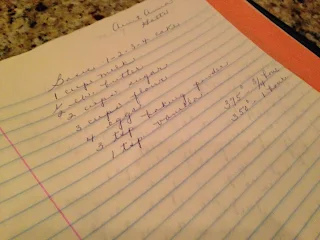 Aunt Anna
1-2-3-4 cake
1 cup milk
butter
2 cups sugar
3 cups flour
4 eggs
3 tsp baking powder
1 tsp vanilla
375°
350° 1 hour